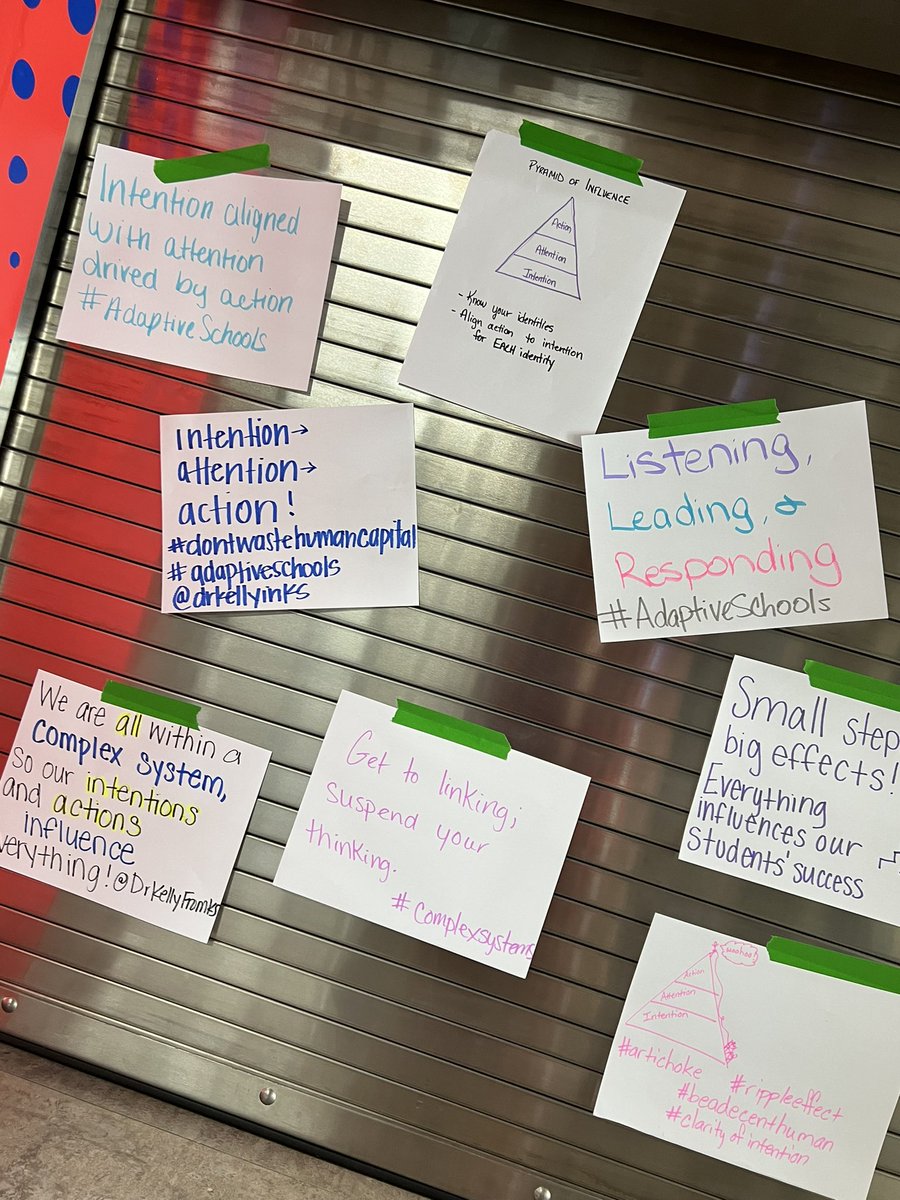 Intention aligned
with attention
drived by action
#AdaptiveSchools
PYRAMID OF INFLUENCE
Action
Attention
Intention
- Know your identities
- Align action to intention
for EACH identity
Intention→
attention→
action!
#dontwastehumancapital
#adaptiveschools
@drkellyinks
Listening,
Leading, &
Responding
#AdaptiveSchools
We are all within a
complex system,
so our intentions
and actions
influence
verything! @DrKellyFromKS
Get to linking;
suspend your
thinking.
#complexsystems
Small step
big effects!
Everything
influences our
Students' success
woohoo!
Action
Attention
Intention
#artichoke #rippleeffect
#beadecenthuman
#clarity of intention